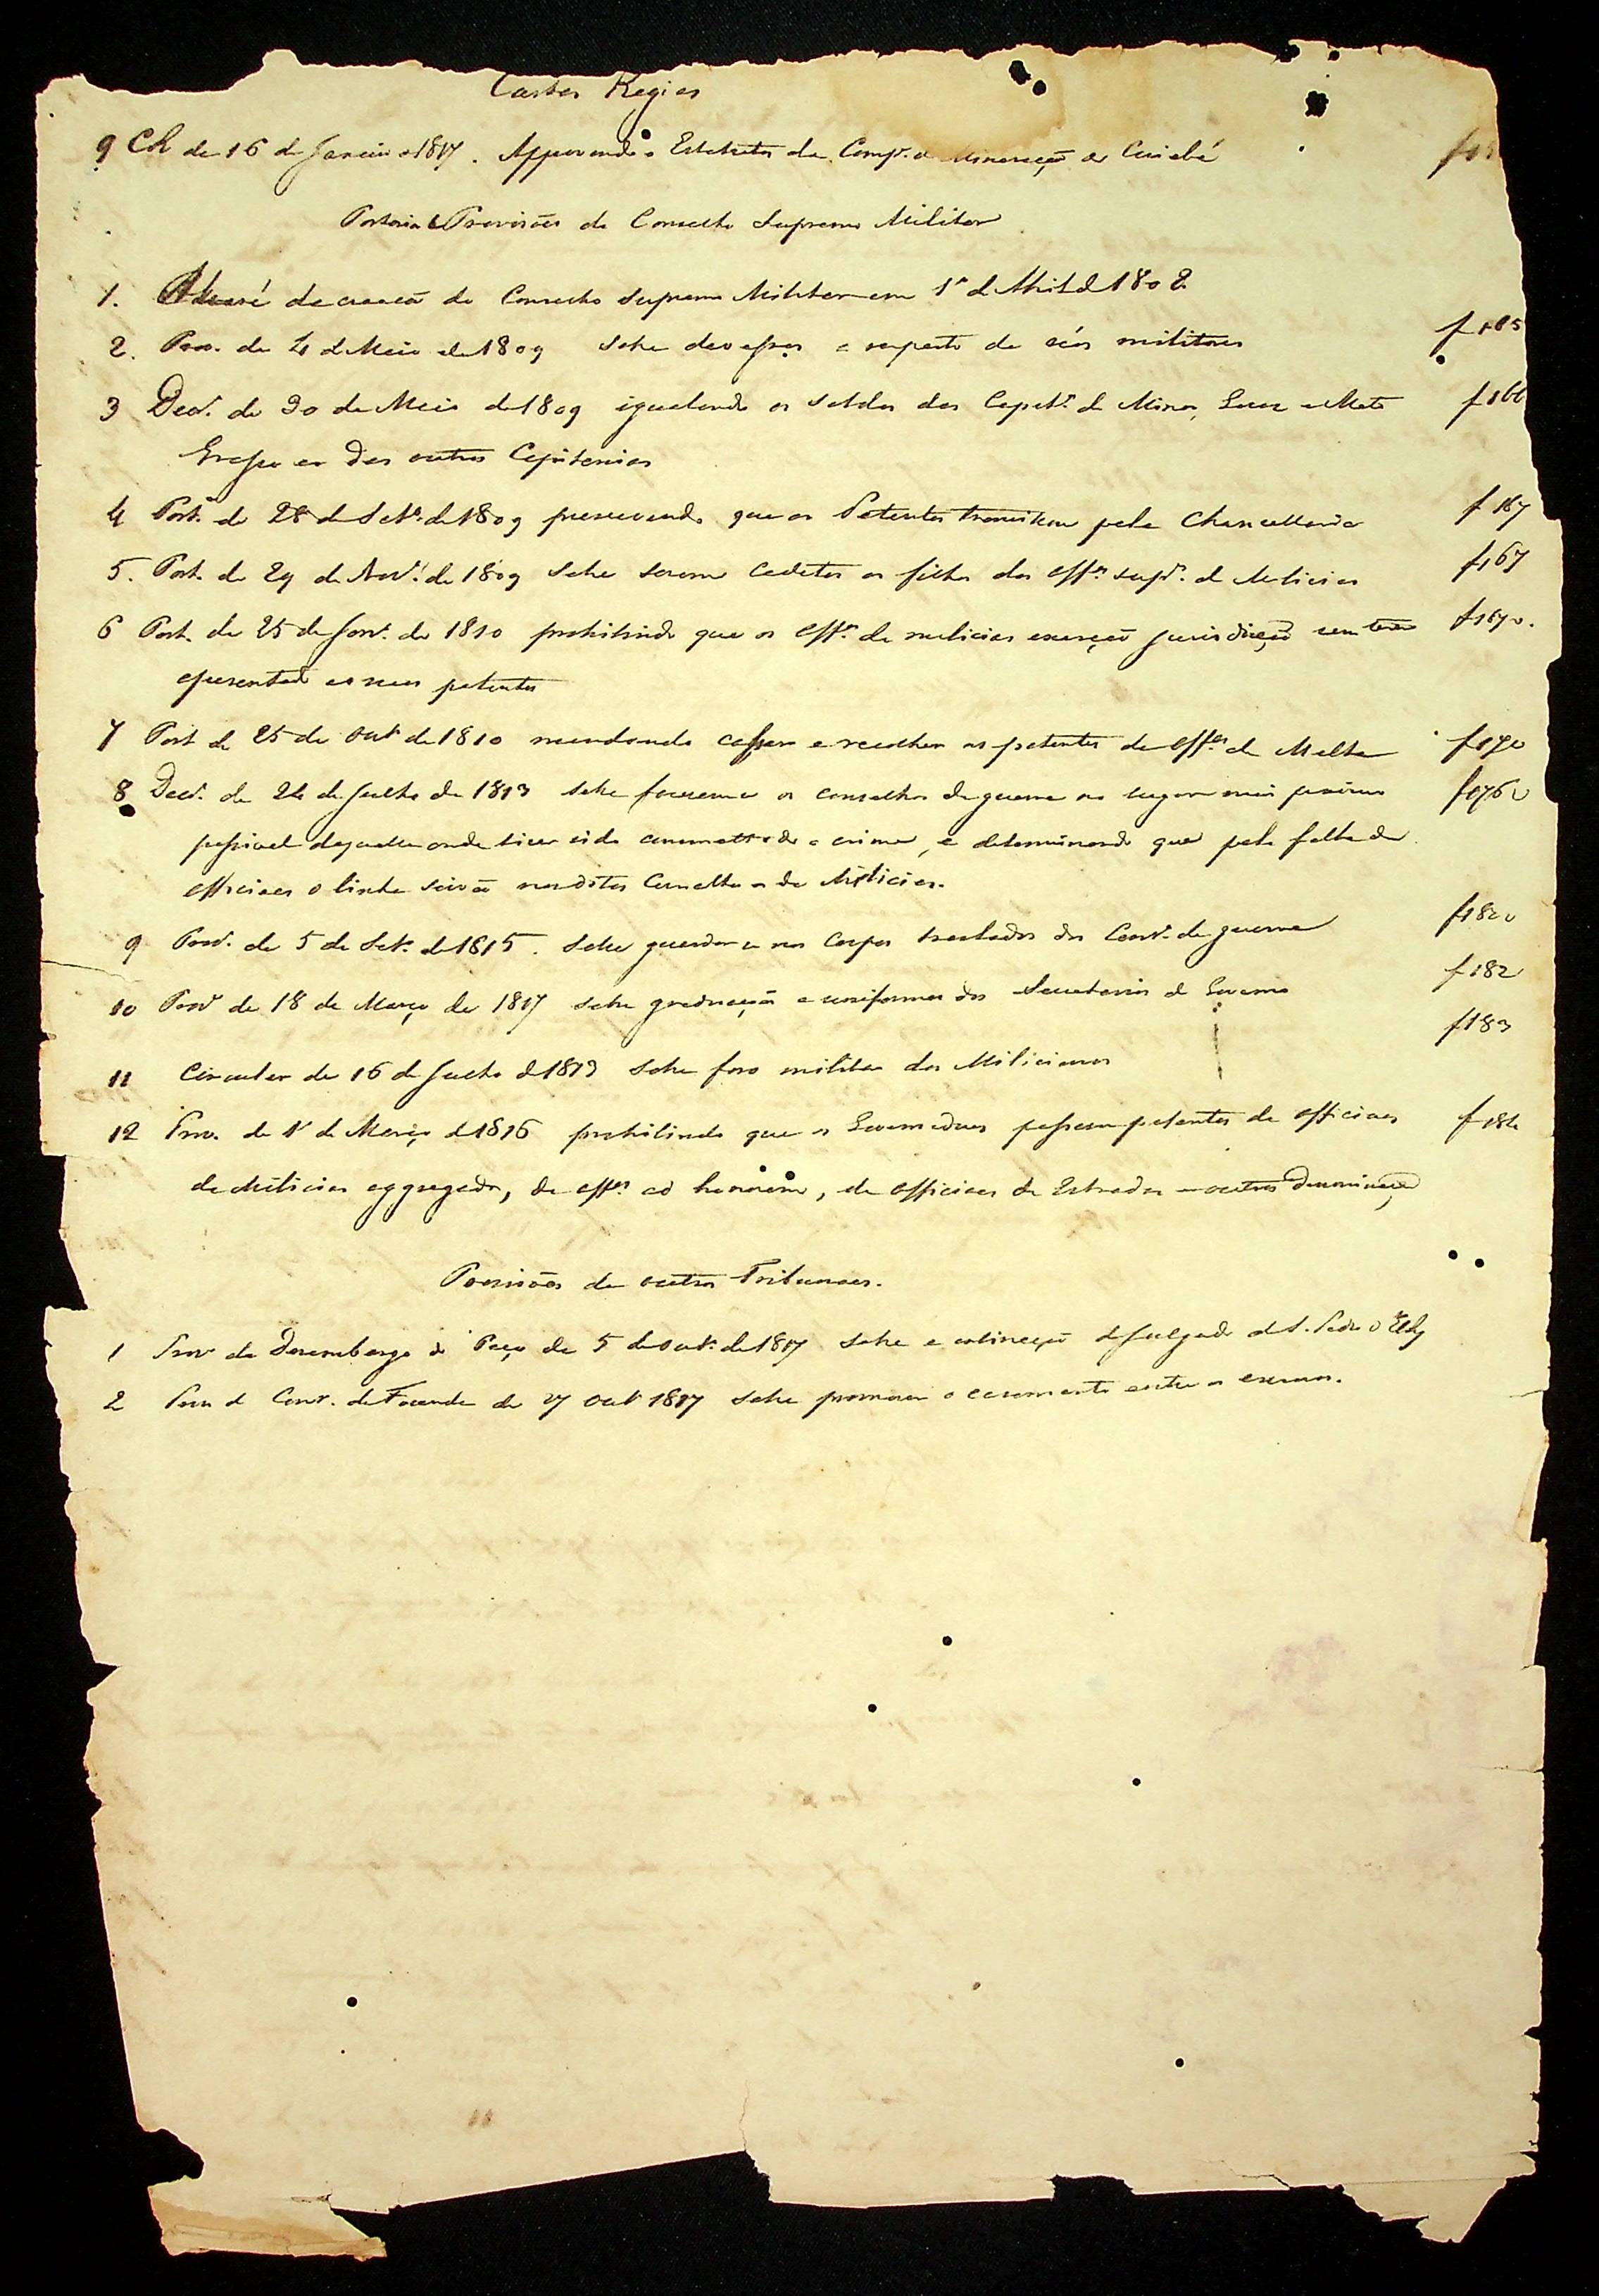 Cartas Regias
9 CR de 16 de Janeiro 1817. Approvando o Estatutos da Comp.ª de Mineração de Cuiabá
Portarias e Provisões do Conselho Supremo Militar
1. Alvará de creacã do Conselho Supremo Militar em 1º d Abril d 1808
2. Prov. de 4 d Maio de 1809 sobre devassas a respeito de réos militares f 165
3 Decr. de 30 de Maio de 1809 igualando os soldos das Capit.as de Minas, Goiaz e Mato f 166
Grosso ao das outras Capitanias
4 Port. de 28 de Setº de 1809 prescrevendo que as Patentes transitem pela Chancellaria f 167
5. Port. de 29 de Nov.º de 1809 sobre serem cadetes os filhos dos Off.es sup.es de Milicias f 167
6 Port. de 25 de Janº de 1810 prohibindo que os Off.es de milicias exerção jurisdicção sem terem f 167v.
apresentado as suas patentes
7 Port de 25 de Outº de 1810 mandando cassar e recolher as patentes de Off.es de Malta f 170
8 Decr. de 24 de Julho de 1813 sobre fazerem-se os conselhos de guerra no lugar mais proximo f 176v
possivel daquelle onde tiver sido commettido o crime, e determinando que pela falta de
officiaes de linha sirvão nos ditos Conselhos os de Milicias.
9 Prov. de 5 de Setº de 1815. sobre guardar-se nos Corpos traslados dos Cons.os de guerra f 180v
10 Prov de 18 de Março de 1817 sobre graduação e uniformes dos Secretarios de Governo f 182
11 Circular de 16 de Julho d 1813 sobre foro militar dos Milicianos f 183
12 Prov. de 1º de Março d 1816 prohibindo que os Governadores passem patentes de officiaes f 184
de Milicias aggregados, de off.es ad honorem, de officiaes de Estradas e outras denominaçõ
Provisões de outros Tribunaes.
1 Prov do Desembargo do Paço de 5 de Outº de 1817 sobre a extincção do Julgado de S. Pedro d'El Rey
2 Prov d Cons.º da Fazenda de 7 Outº 1817 sobre promover o casamento entre os escravos.